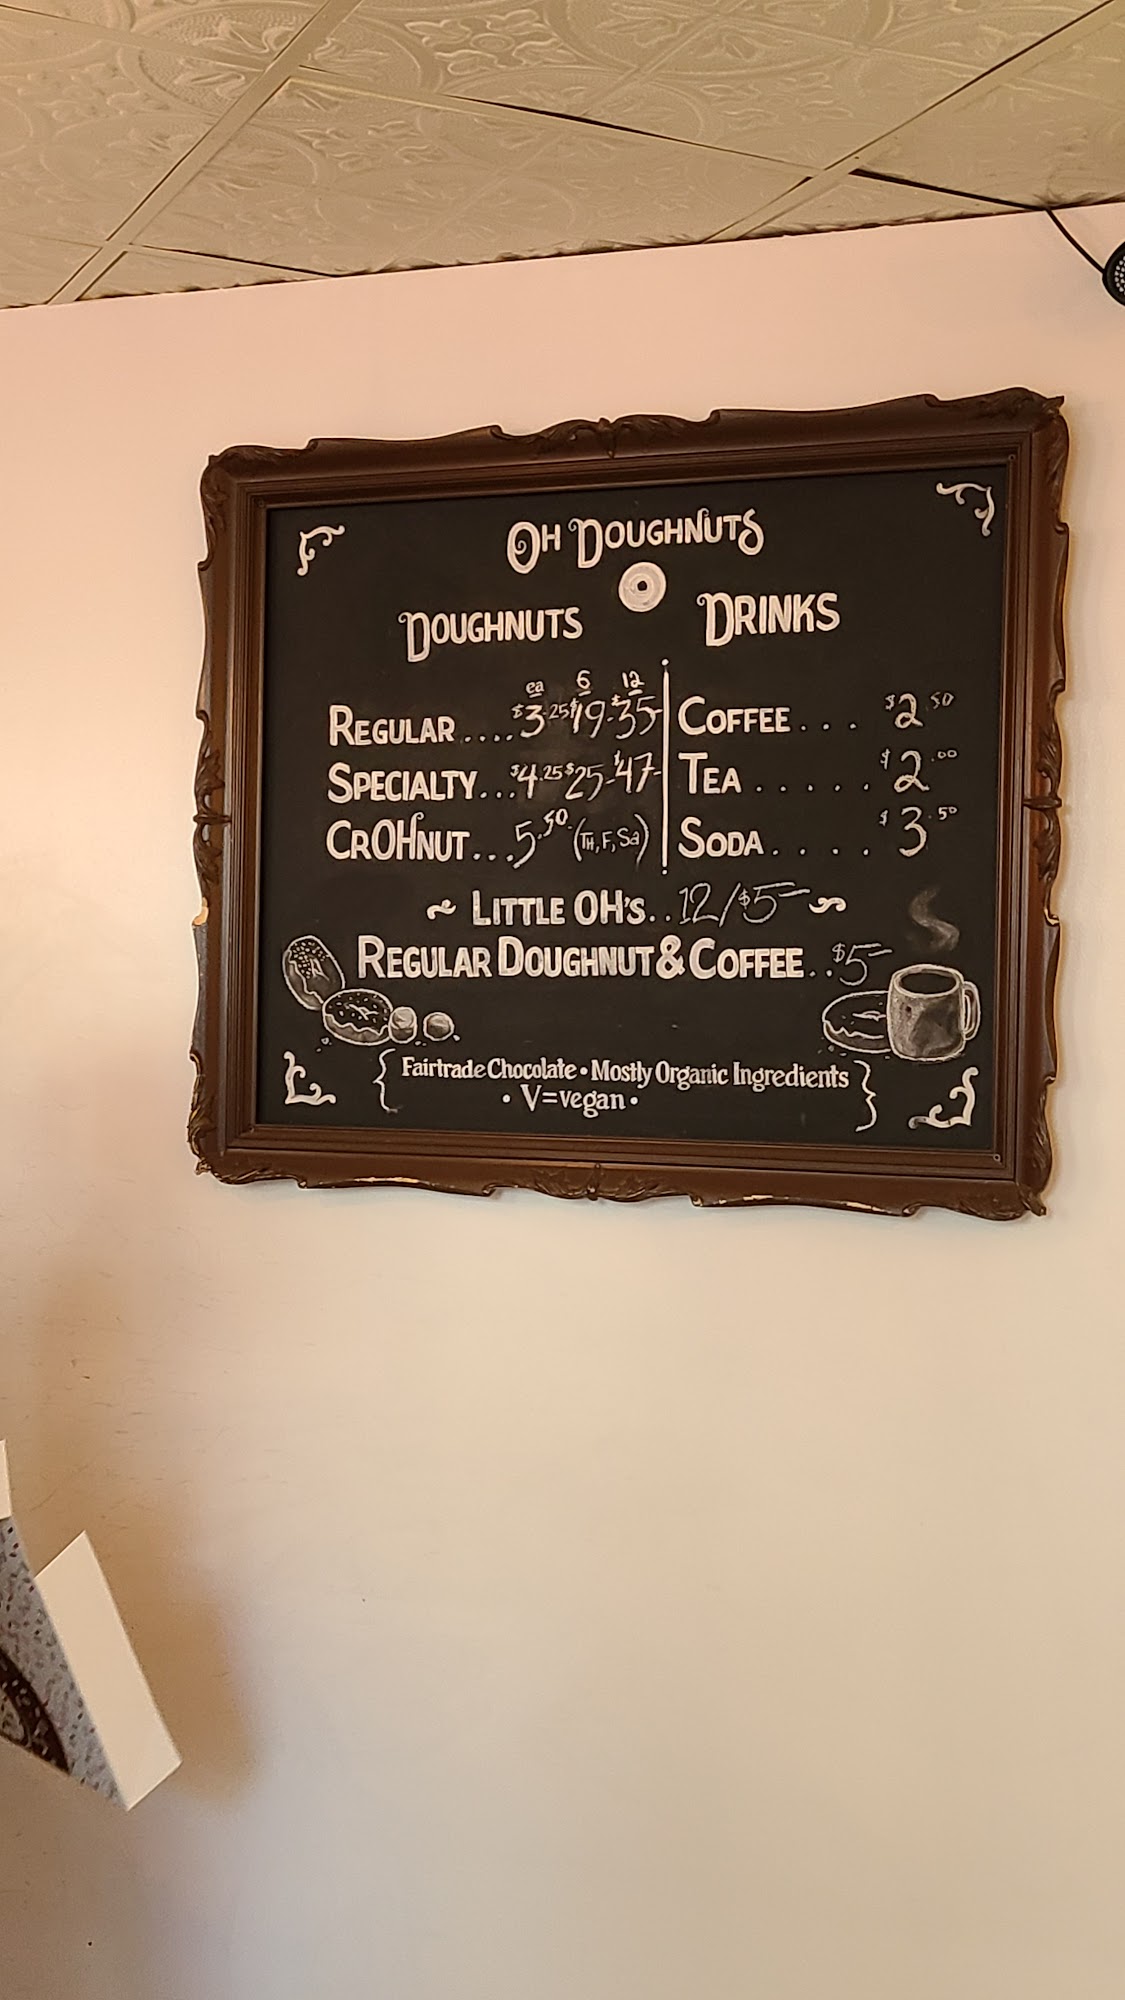 OH DOUGHNUTS
DOUGHNUTS DRINKS
ea 6 12
REGULAR .... $3.25 $19- $35-
SPECIALTY... $4.25 $25- $47-
CROHNUT... 5.50 (TH, F, Sa)
COFFEE . . . $2.50
TEA . . . . . . $2.00
SODA . . . . . $3.50
~ LITTLE OH'S.. 12/$5- ~
REGULAR DOUGHNUT & COFFEE .. $5-
{ Fairtrade Chocolate • Mostly Organic Ingredients }
• V=vegan •